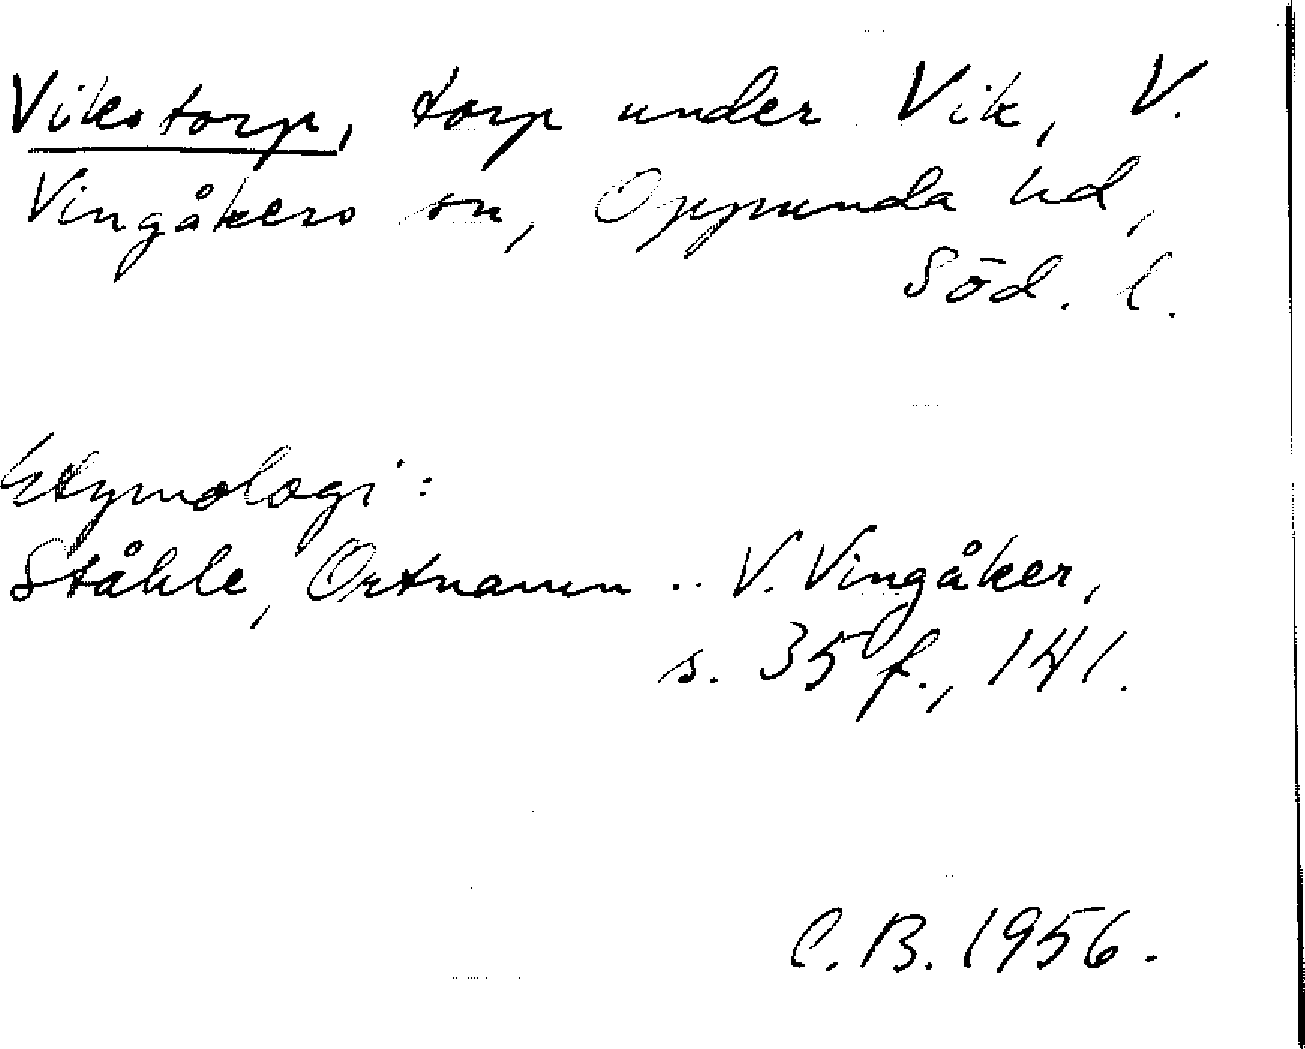 Vikstorp, torp under Vik, V.
Vingåkers sn, Oppunda hd,
Söd. l.
Etymologi:
Ståhle, Ortnamn .. V. Vingåker,
s. 35 f., 141.
C. B. 1956.